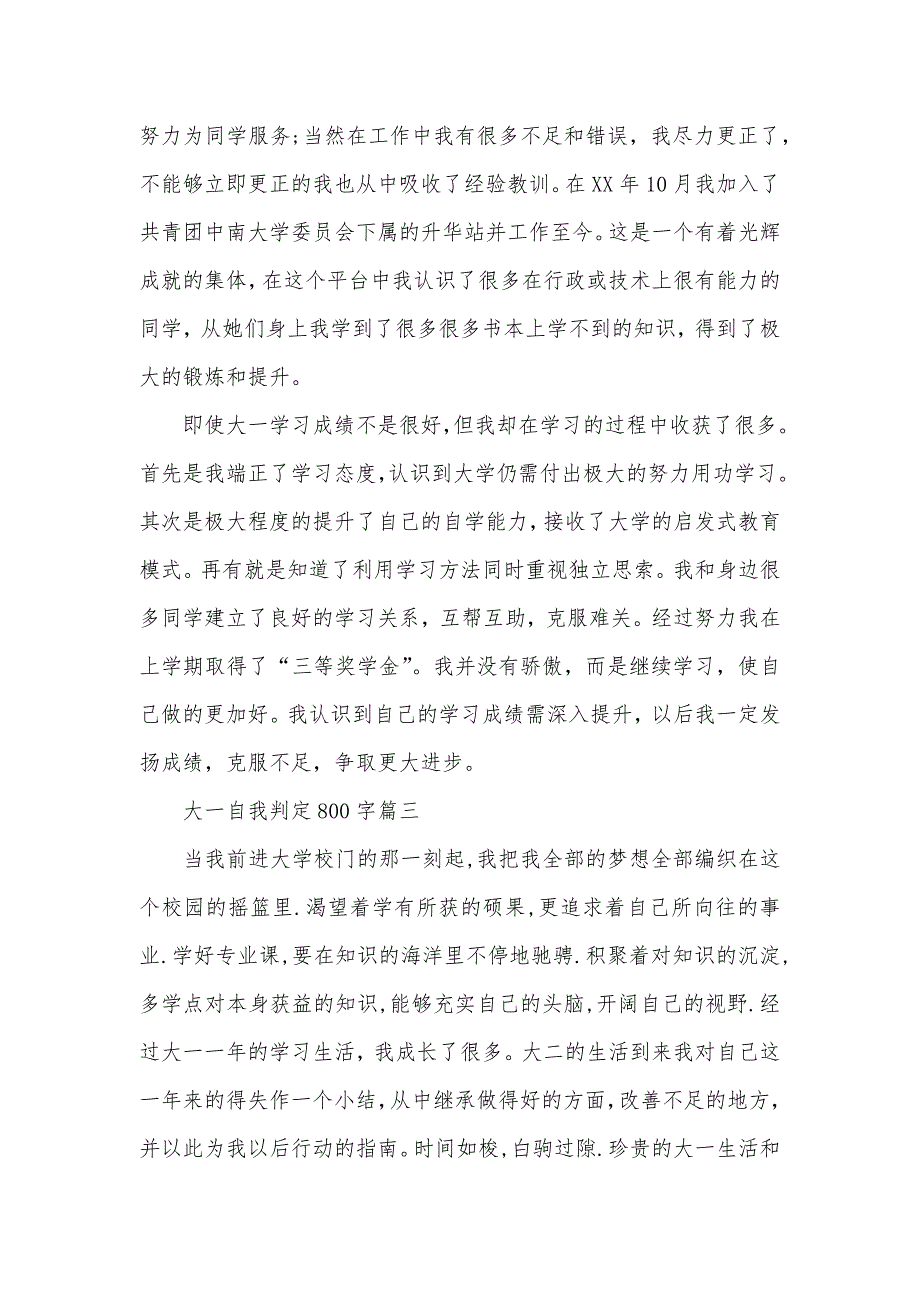 努力为同学服务;当然在工作中我有很多不足和错误，我尽力更正了，
不能够立即更正的我也从中吸收了经验教训。在 XX 年 10 月我加入了
共青团中南大学委员会下属的升华站并工作至今。这是一个有着光辉
成就的集体，在这个平台中我认识了很多在行政或技术上很有能力的
同学，从她们身上我学到了很多很多书本上学不到的知识，得到了极
大的锻炼和提升。
即使大一学习成绩不是很好，但我却在学习的过程中收获了很多。
首先是我端正了学习态度，认识到大学仍需付出极大的努力用功学习。
其次是极大程度的提升了自己的自学能力，接收了大学的启发式教育
模式。再有就是知道了利用学习方法同时重视独立思索。我和身边很
多同学建立了良好的学习关系，互帮互助，克服难关。经过努力我在
上学期取得了“三等奖学金”。我并没有骄傲，而是继续学习，使自
己做的更加好。我认识到自己的学习成绩需深入提升，以后我一定发
扬成绩，克服不足，争取更大进步。
大一自我判定 800 字篇三
当我前进大学校门的那一刻起,我把我全部的梦想全部编织在这
个校园的摇篮里.渴望着学有所获的硕果,更追求着自己所向往的事
业.学好专业课,要在知识的海洋里不停地驰骋.积聚着对知识的沉淀,
多学点对本身获益的知识,能够充实自己的头脑,开阔自己的视野.经
过大一一年的学习生活，我成长了很多。大二的生活到来我对自己这
一年来的得失作一个小结，从中继承做得好的方面，改善不足的地方，
并以此为我以后行动的指南。时间如梭,白驹过隙.珍贵的大一生活和